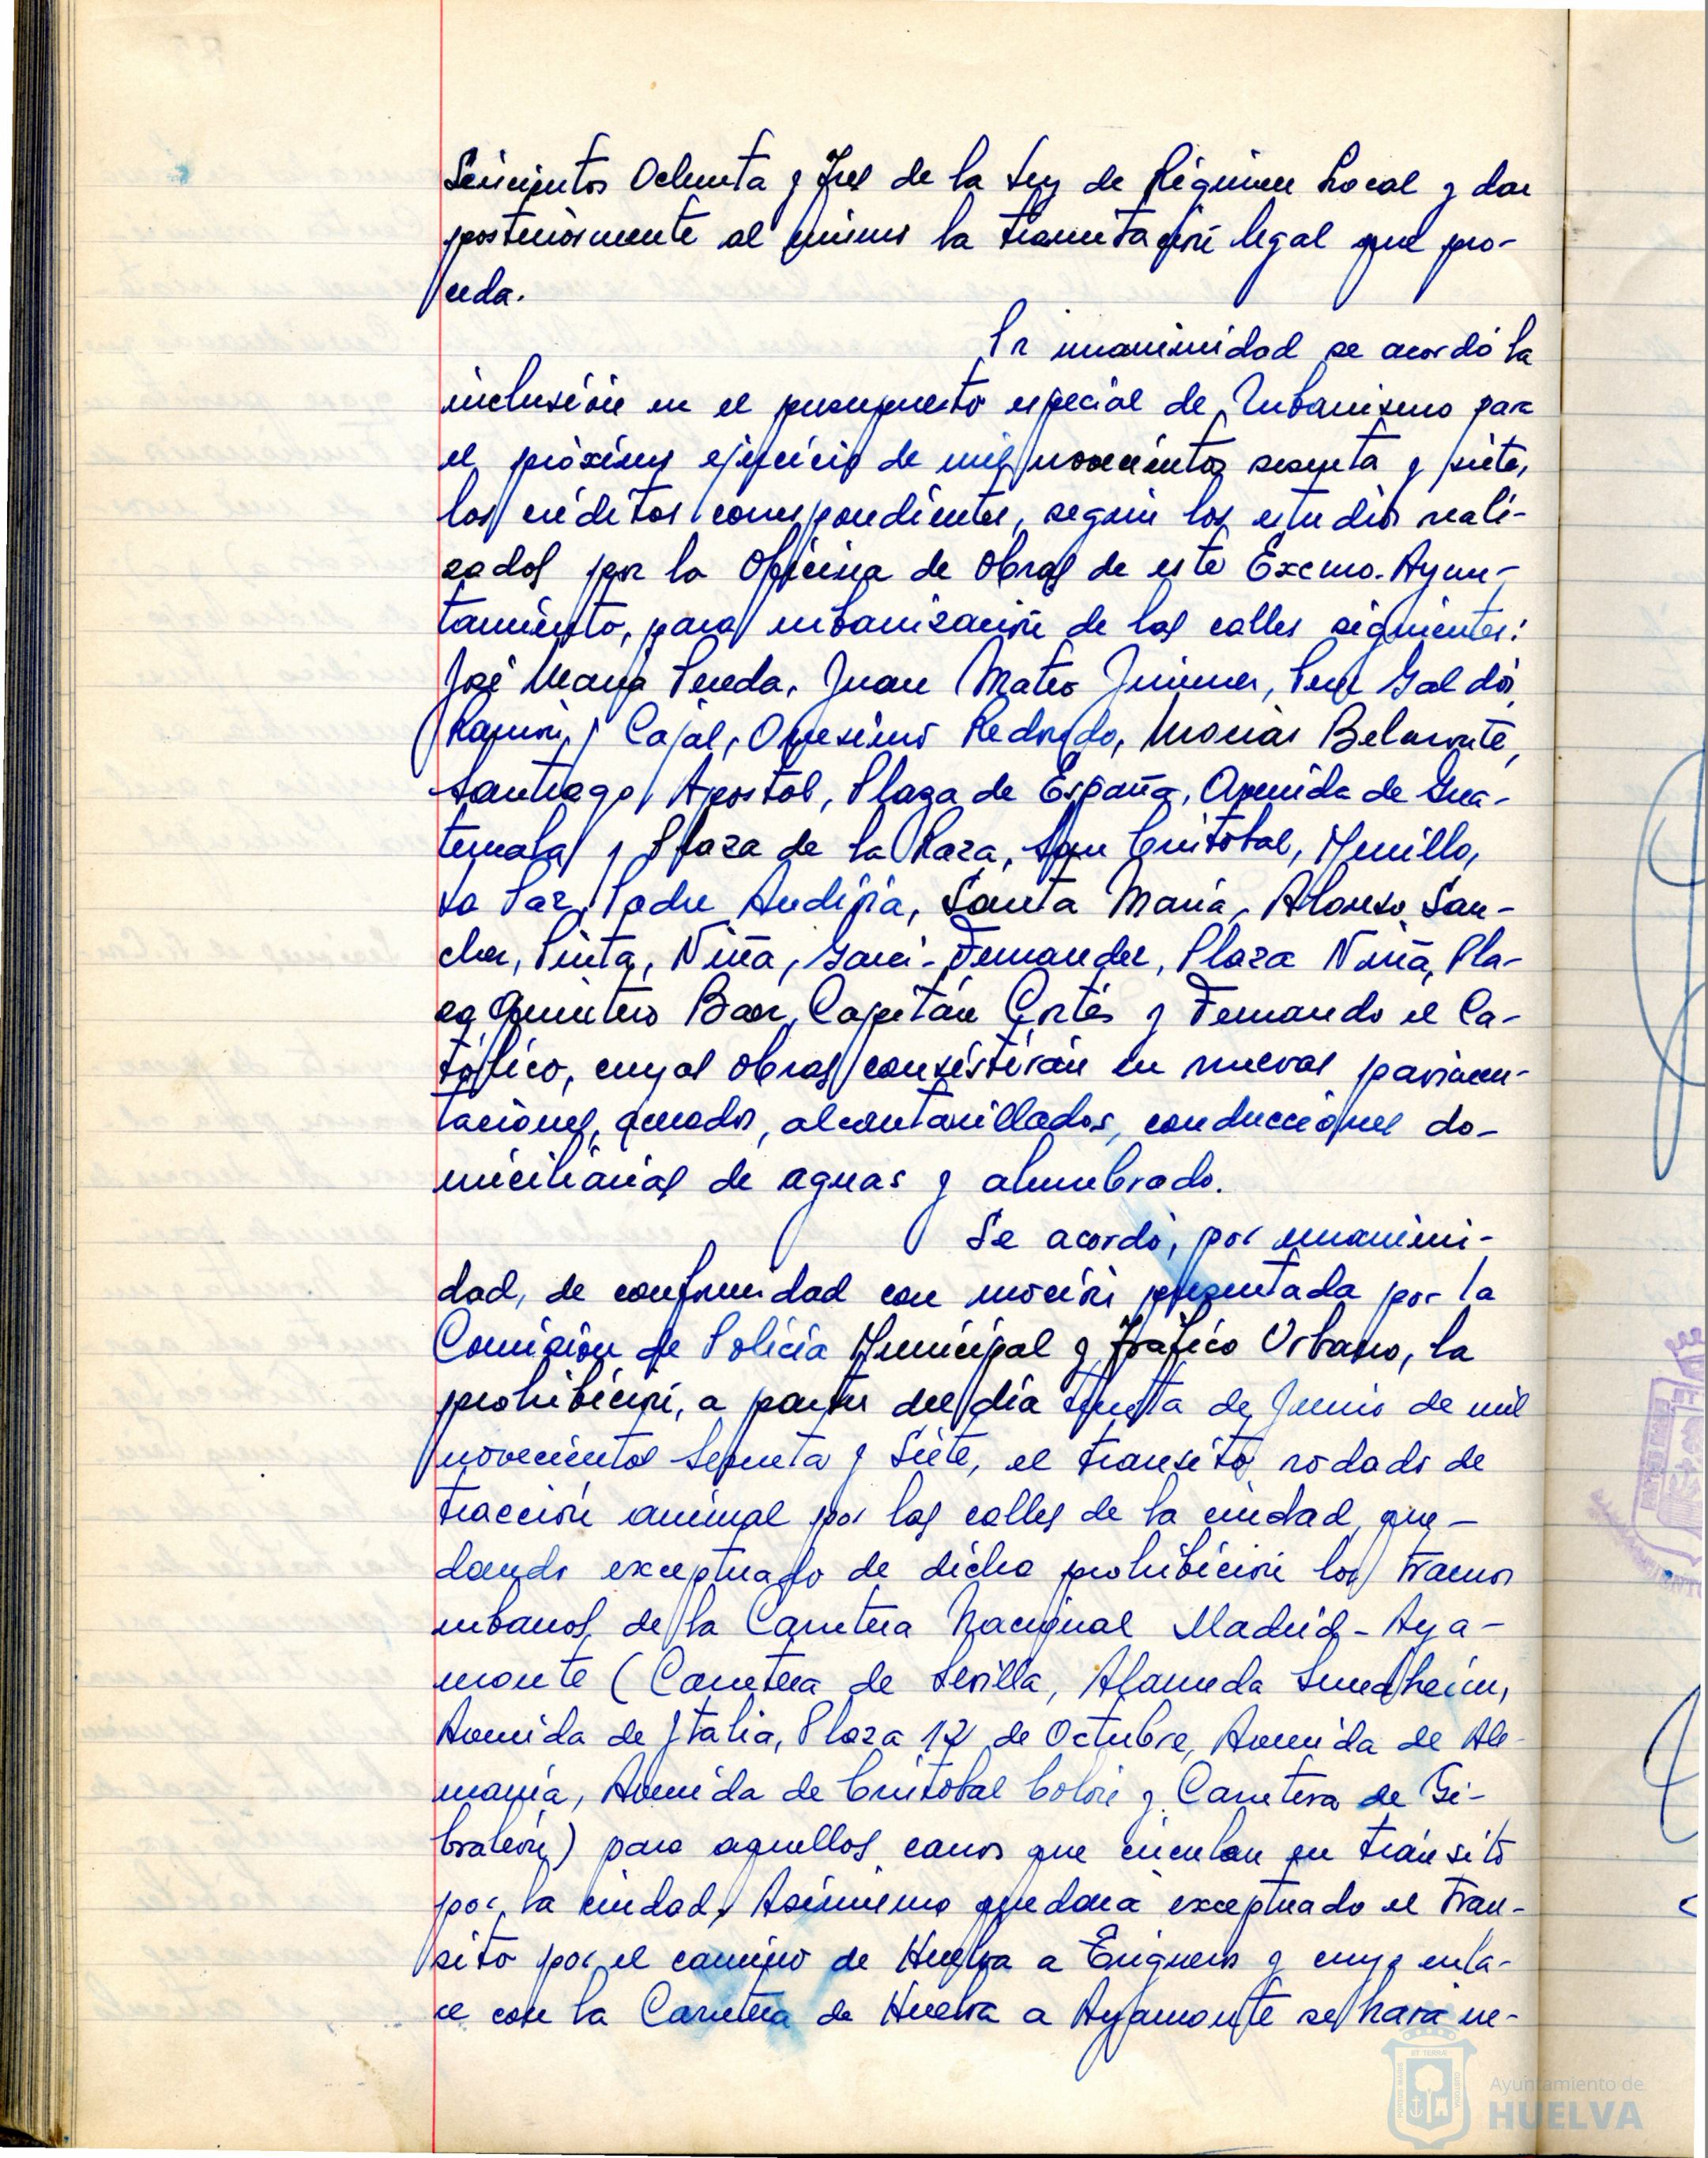 Seiscientos Ochenta y Tres de la Ley de Régimen Local y dar
posteriormente al mismo la tramitación legal que pro-
ceda.
Por unanimidad se acordó la
inclusión en el presupuesto especial de Urbanismo para
el próximo ejercicio de mil novecientos sesenta y siete,
los créditos correspondientes, según los estudios reali-
zados por la Oficina de Obras de este Excmo. Ayun-
tamiento, para urbanización de las calles siguientes:
José María Pereda, Juan Mateo Jimenez, Perez Galdós,
Ramón y Cajal, Onesimo Redondo, Macías Belmonte,
Santiago Apostol, Plaza de España, Avenida de Gua-
temala y Plaza de la Raza, San Cristobal, Murillo,
La Paz, Padre Andivia, Santa María, Alonso San-
chez, Pinta, Niña, Garci-Fernandez, Plaza Niña, Pla-
za Quintero Baez, Capitán Cortés y Fernando el Ca-
tólico, cuyas obras consistirán en nuevas pavimen-
taciones, acerados, alcantarillados, conducciones do-
miciliarias de aguas y alumbrado.
Se acordó, por unanimi-
dad, de conformidad con moción presentada por la
Comisión de Policía Municipal y Tráfico Urbano, la
prohibición, a partir del día treinta de Junio de mil
novecientos sesenta y siete, el transito rodado de
tracción animal por las calles de la ciudad, que-
dando exceptuado de dicha prohibición los tramos
urbanos de la Carretera Nacional Madrid-Aya-
monte (Carretera de Sevilla, Alameda Sundheim,
Avenida de Italia, Plaza 12 de Octubre, Avenida de Ale-
mania, Avenida de Cristobal Colón y Carretera de Gi-
braleón) para aquellos carros que circulan en tránsito
por la ciudad. Asimismo quedará exceptuado el tran-
sito por el camino de Huelva a y cuyo enla-
ce con la Carretera de Huelva a Ayamonte se hará ne-
Ayuntamiento de
HUELVA